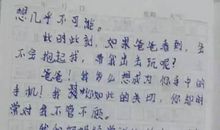 想几乎不可能。
此时此刻，如果爸爸看到，会
不会抱起我，带我出去玩呢？
爸爸！我多么想成为你手中的
手机！我
如此的关切，你却时
常对我不管不顾。